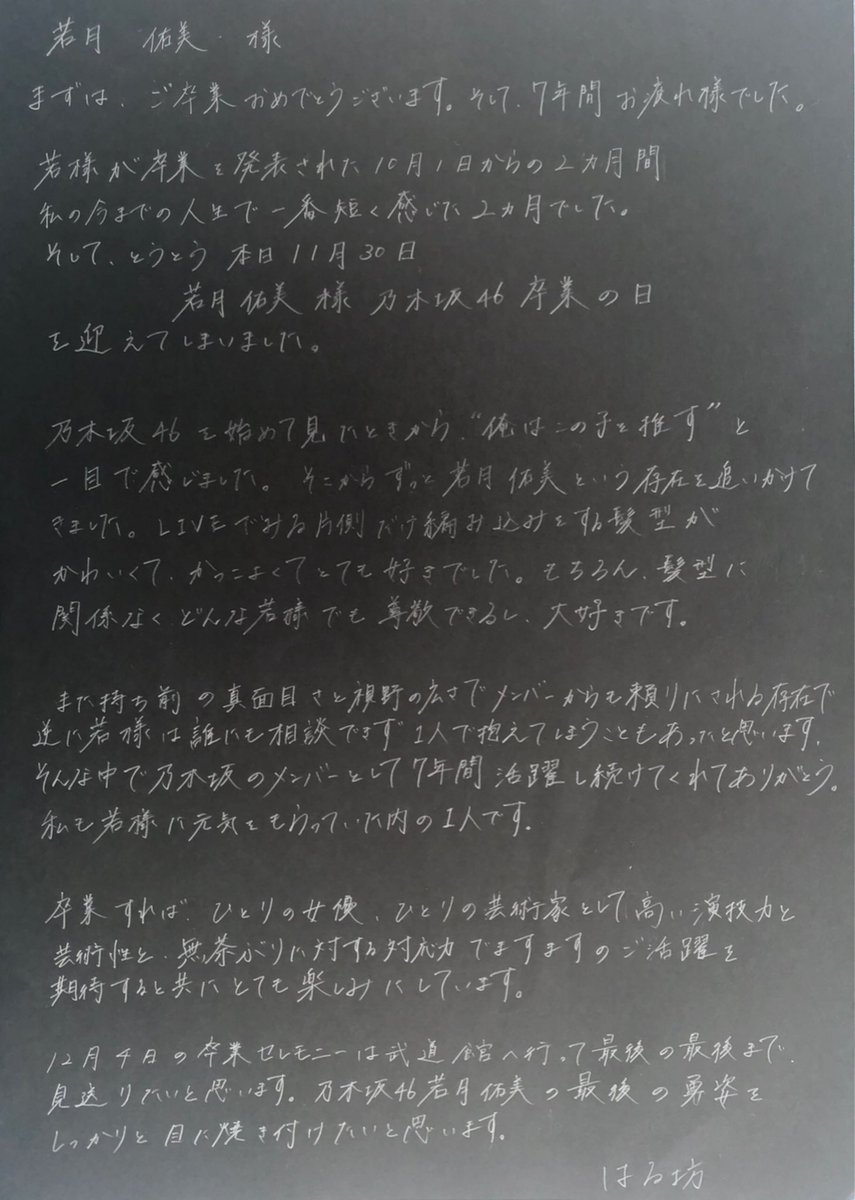 若月　佑美　様
まずは、ご卒業おめでとうございます。そして、7年間お疲れ様でした。
若様が卒業を発表された10月1日からの2カ月間
私の今までの人生で一番短く感じた2カ月でした。
そして、とうとう本日11月30日
若月佑美様 乃木坂46 卒業の日
を迎えてしまいました。
乃木坂46を始めて見たときから、“俺はこの子を推す”と
一目で感じました。そこからずっと若月佑美という存在を追いかけて
きました。LIVEでみる片側だけ編み込みをする髪型が
かわいくて、かっこよくてとても好きでした。もちろん、髪型に
関係なくどんな若様でも尊敬できるし、大好きです。
また持ち前の真面目さと視野の広さでメンバーからも頼りにされる存在で
逆に若様は誰にも相談できず1人で抱えてしまうこともあったと思います。
そんな中で乃木坂のメンバーとして7年間活躍し続けてくれてありがとう。
私も若様に元気をもらっていた内の1人です。
卒業すれば、ひとりの女優、ひとりの芸術家として高い演技力と
芸術性と、無茶ぶりに対する対応力でますますのご活躍を
期待すると共にとても楽しみにしています。
12月4日の卒業セレモニーは武道館へ行って最後の最後まで、
見送りたいと思います。乃木坂46若月佑美の最後の勇姿を
しっかりと目に焼き付けたいと思います。
はる坊